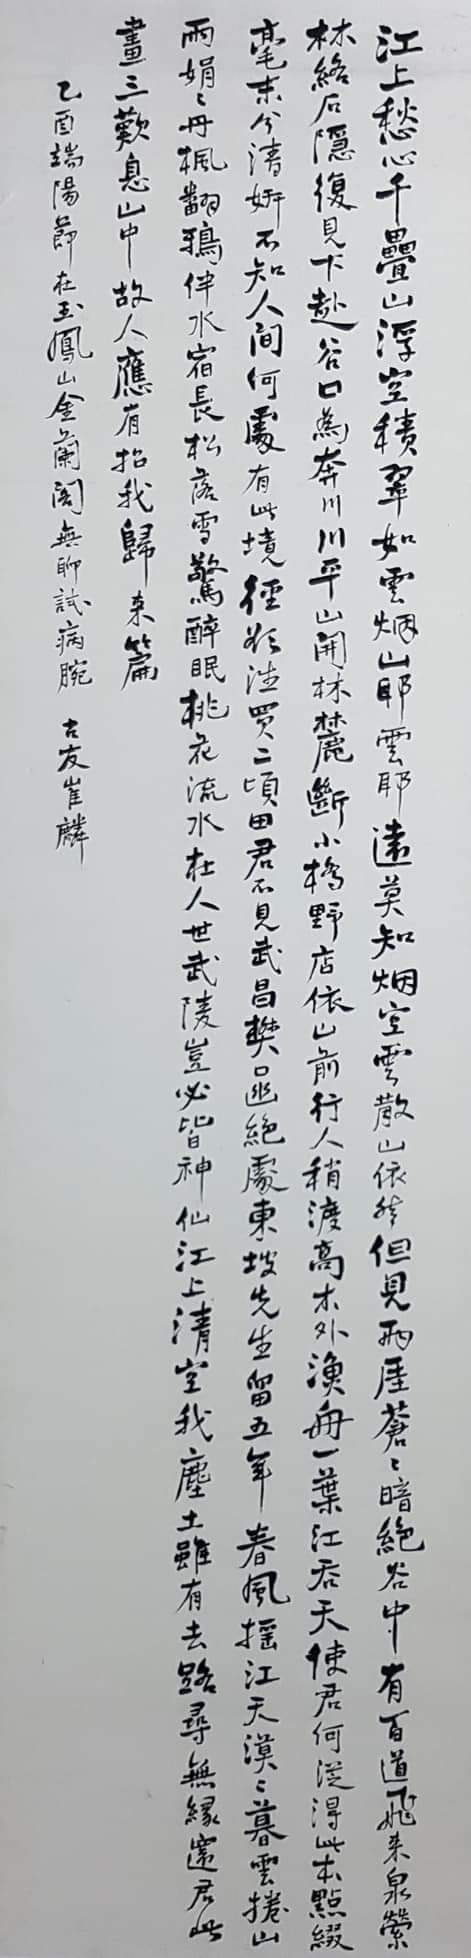 江上愁心千疊山浮空積翠如雲烟山耶雲耶遠莫知烟空雲散山依然但見兩厓蒼〻暗絶谷中有百道飛来泉縈
林絡石隱復見下赴谷口為奔川川平山開林麓斷小橋野店依山前行人稍渡高木外漁舟一葉江吞天使君何從得此本點綴
毫末分清妍不知人间何處有此境徑欲往買二頃田君不見武昌樊口幽絶處東坡先生留五年春風揺江天漠〻暮雲捲山
雨娟〻丹楓翻鴉伴水宿長松落雪驚醉眠桃花流水在人世武陵豈必皆神仙江上清空我塵土雖有去路尋無緣還君此
畫三歎息山中故人應有招我歸来篇
乙酉端陽節在玉鳳山金蘭阁無聊試病腕 古友崔麟